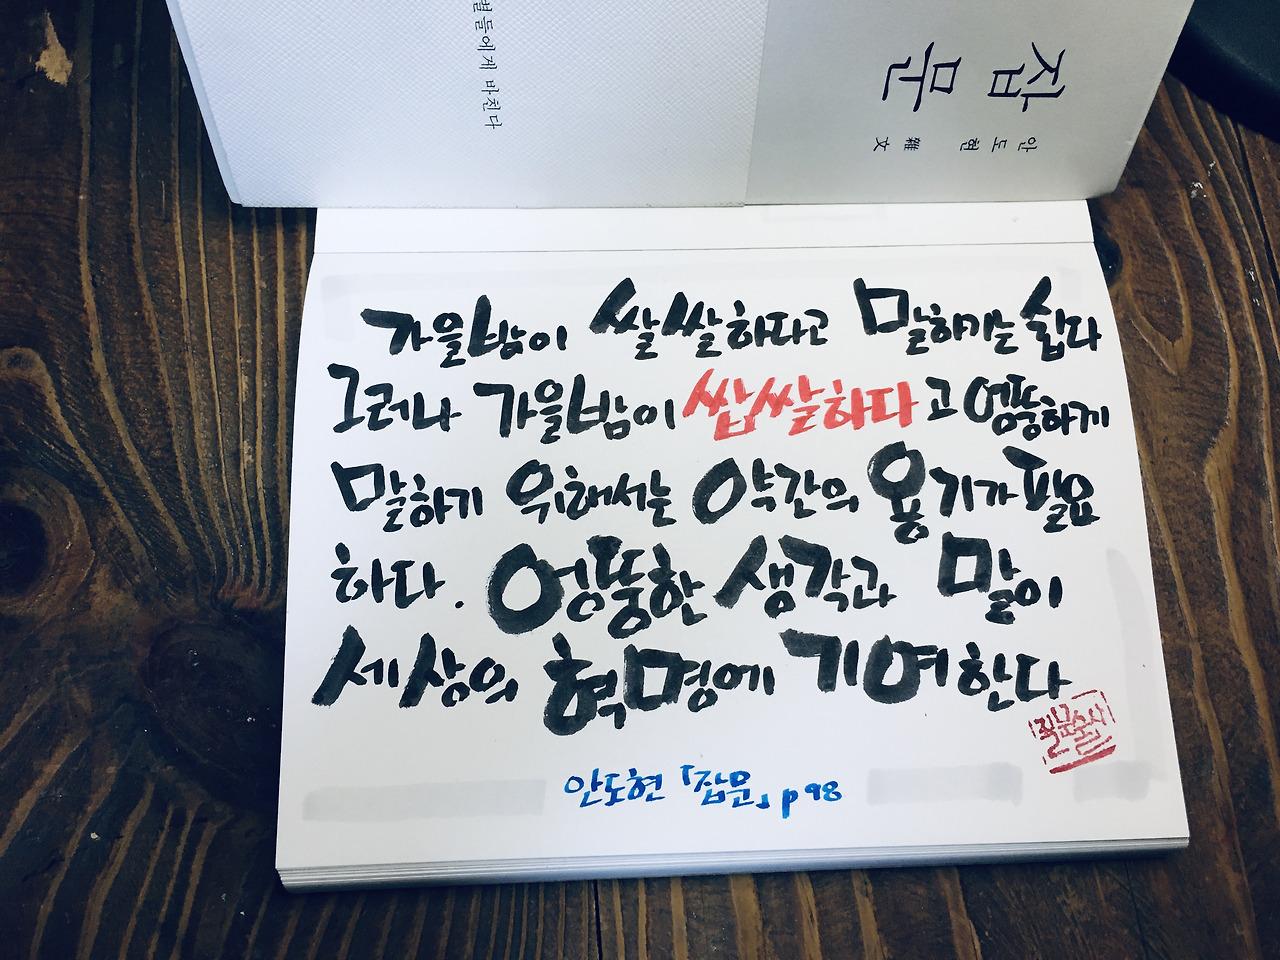 별들에게 바친다
잡문
안도현 雜文
가을밤이 쌀쌀하다고 말하기는 쉽다
그러나 가을밤이 쌉쌀하다고 엉뚱하게
말하기 위해서는 약간의 용기가 필요
하다. 엉뚱한 생각과 말이
세상의 혁명에 기여한다
안도현 「잡문」 p98